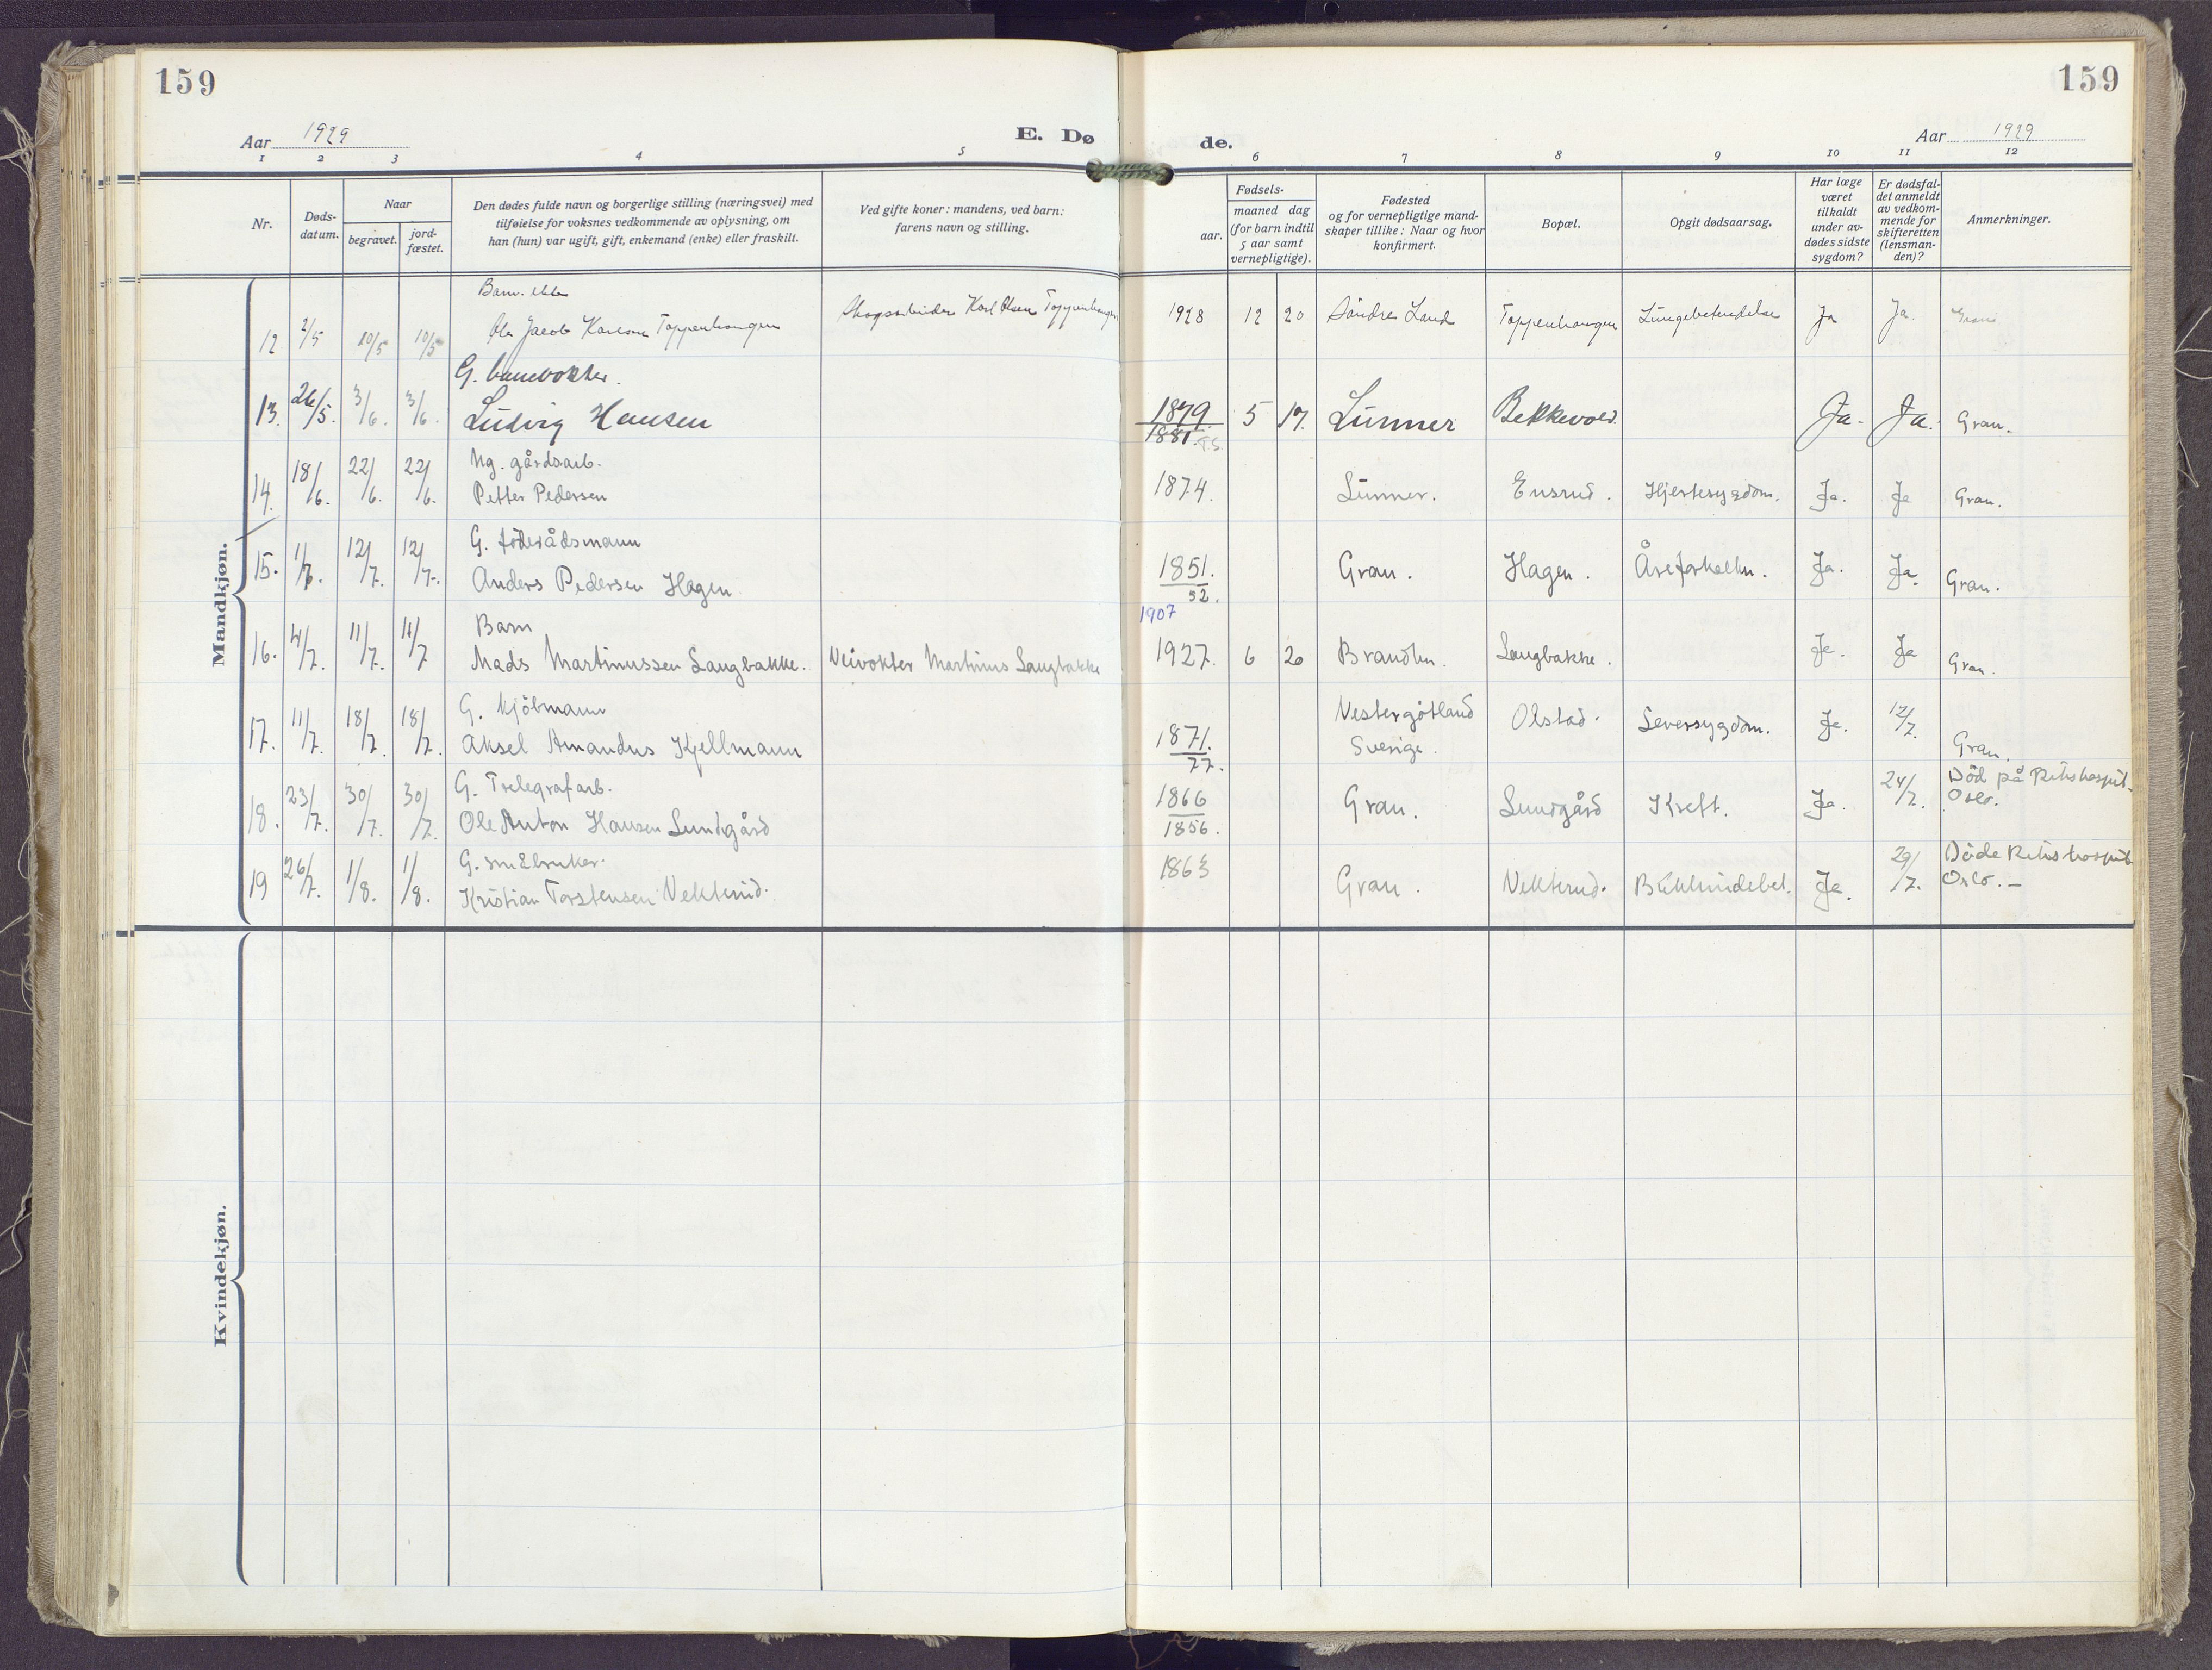 159
159
Aar 1929
E. Dø
de.
Aar 1929
1 2 3 4 5 6 7 8 9 10 11 12
Nr.
Døds-
datum.
Naar
begravet.
jord-
fæstet.
Den dødes fulde navn og borgerlige stilling (næringsvei) med
tilføielse for voksnes vedkommende av oplysning, om
han (hun) var ugift, gift, enkemand (enke) eller fraskilt.
Ved gifte koner: mandens, ved barn:
farens navn og stilling.
Fødsels-
aar.
maaned dag
(for barn indtil
5 aar samt
vernepligtige).
Fødested
og for vernepligtige mand-
skaper tillike: Naar og hvor
konfirmert.
Bopæl.
Opgit dødsaarsag.
Har læge
været
tilkaldt
under av-
dødes sidste
sygdom?
Er dødsfal-
det anmeldt
av vedkom-
mende for
skifteretten
(lensman-
den)?
Anmerkninger.
Mandkjøn.
Barn
12 2/5 10/5 10/5 Ole Jacob Karlsen Toppenhaugen Skogsarbeider Karl Olsen Toppenhaugen 1928 12 20 Søndre Land Toppenhaugen Lungebetendelse Ja Ja. Gran
G. banevokter.
13. 26/5. 3/6. 3/6. Ludvig Hansen 1879 5 17. Lunner Bekkevold. Ja. Ja. Gran.
1881.
Ug. gårdsarb.
14. 18/6. 22/6. 22/6. Petter Pedersen 1874. Lunner. Ensrud. Hjertesygdom. Ja. Ja Gran.
G. föderådsmann
15. 1/7. 12/7. 12/7. Anders Pedersen Hagen 1851. Gran. Hagen. Åreforkalkn. Ja. Ja. Gran.
52.
1907
Barn
16. 4/7. 11/7. 11/7 Mads Martinussen Langbakke. Veivokter Martinius Langbakke 1927. 6 20 Brandbu. Langbakke. Ja. Ja Gran.
G. kjöbmann
17. 11/7. 18/7. 18/7. Aksel Amandus Kjellmann 1871. Vestergötland Olstad. Leversygdom. Ja. 12/7. Gran.
77. Sverige.
G. Telegrafarb.
18. 23/7. 30/7. 30/7. Ole Anton Hansen Lundgård 1866 Gran. Lundgård Kreft. Ja. 24/7. Död på Rikshospit.
1856. Oslo.
G. småbruker.
19 26/7. 1/8. 1/8. Kristian Torstensen Vekterud. 1863 Gran. Vekterud. Bukhindebet. Ja. 29/7. Döde Rikshospit
Oslo. –
Kvindekjøn.